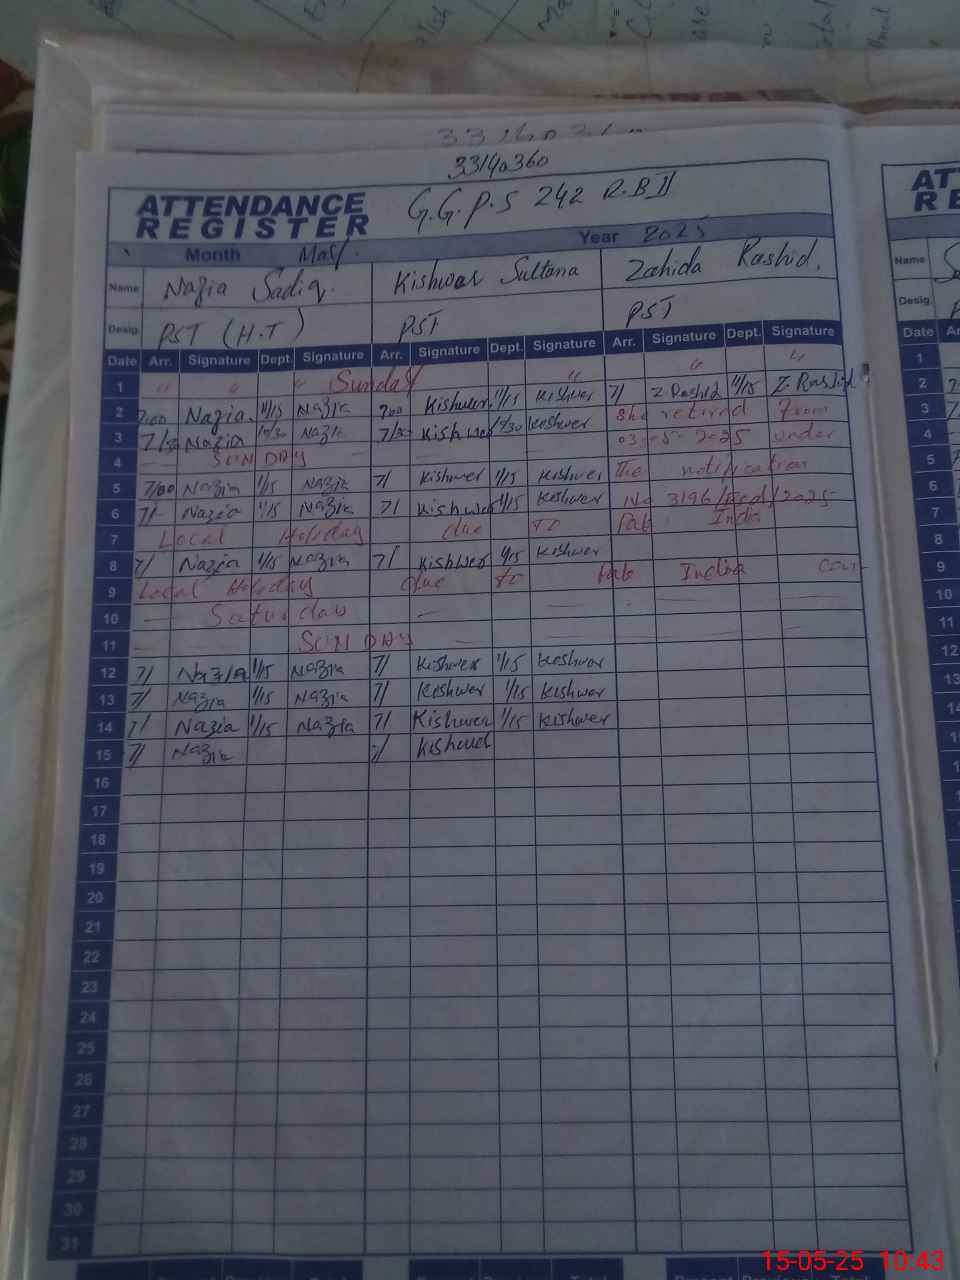 33140360
ATTENDANCE REGISTER G.G.P.S 242 R.B II
Month May Year 2025
Name Nazia Sadiq. Kishwar Sultana Zahida Rashid.
Desig. PST (H.T) PST PST
Date Arr. Signature Dept. Signature Arr. Signature Dept. Signature Arr. Signature Dept. Signature
1 " " " Sunday " " "
2 7:00 Nazia 11/15 Nazia 7:00 Kishwer 11/15 Kishwer 7/ Z.Rashid 11/15 Z.Rashid
3 7/ Nazia Nazia 7/ Kishwer Kishwer She retired From
4 SUNDAY 03-5-2025 under
5 7/00 Nazia 1/15 Nazia 7/ Kishwer 1/15 Kishwer The notification
6 7/ Nazia 1/15 Nazia 7/ Kishwer 1/15 Kishwer No 3196/ /2025
7 Local Holiday due to Pak India
8 7/ Nazia 1/15 Nazia 7/ Kishwer 1/15 Kishwer
9 Local Holiday due to Pak India
10 Saturday
11 SUNDAY
12 7/ Nazia 1/15 Nazia 7/ Kishwer 1/15 Kishwer
13 7/ Nazia 1/15 Nazia 7/ Kishwer 1/15 Kishwer
14 7/ Nazia 1/15 Nazia 7/ Kishwer 1/15 Kishwer
15 7/ Nazia 7/ Kishwer
16
17
18
19
20
21
22
23
24
25
26
27
28
29
30
31
Name
Desig.
Date Arr.
1
2
3
4
5
6
7
8
9
10
11
12
13
15-05-25 10:43